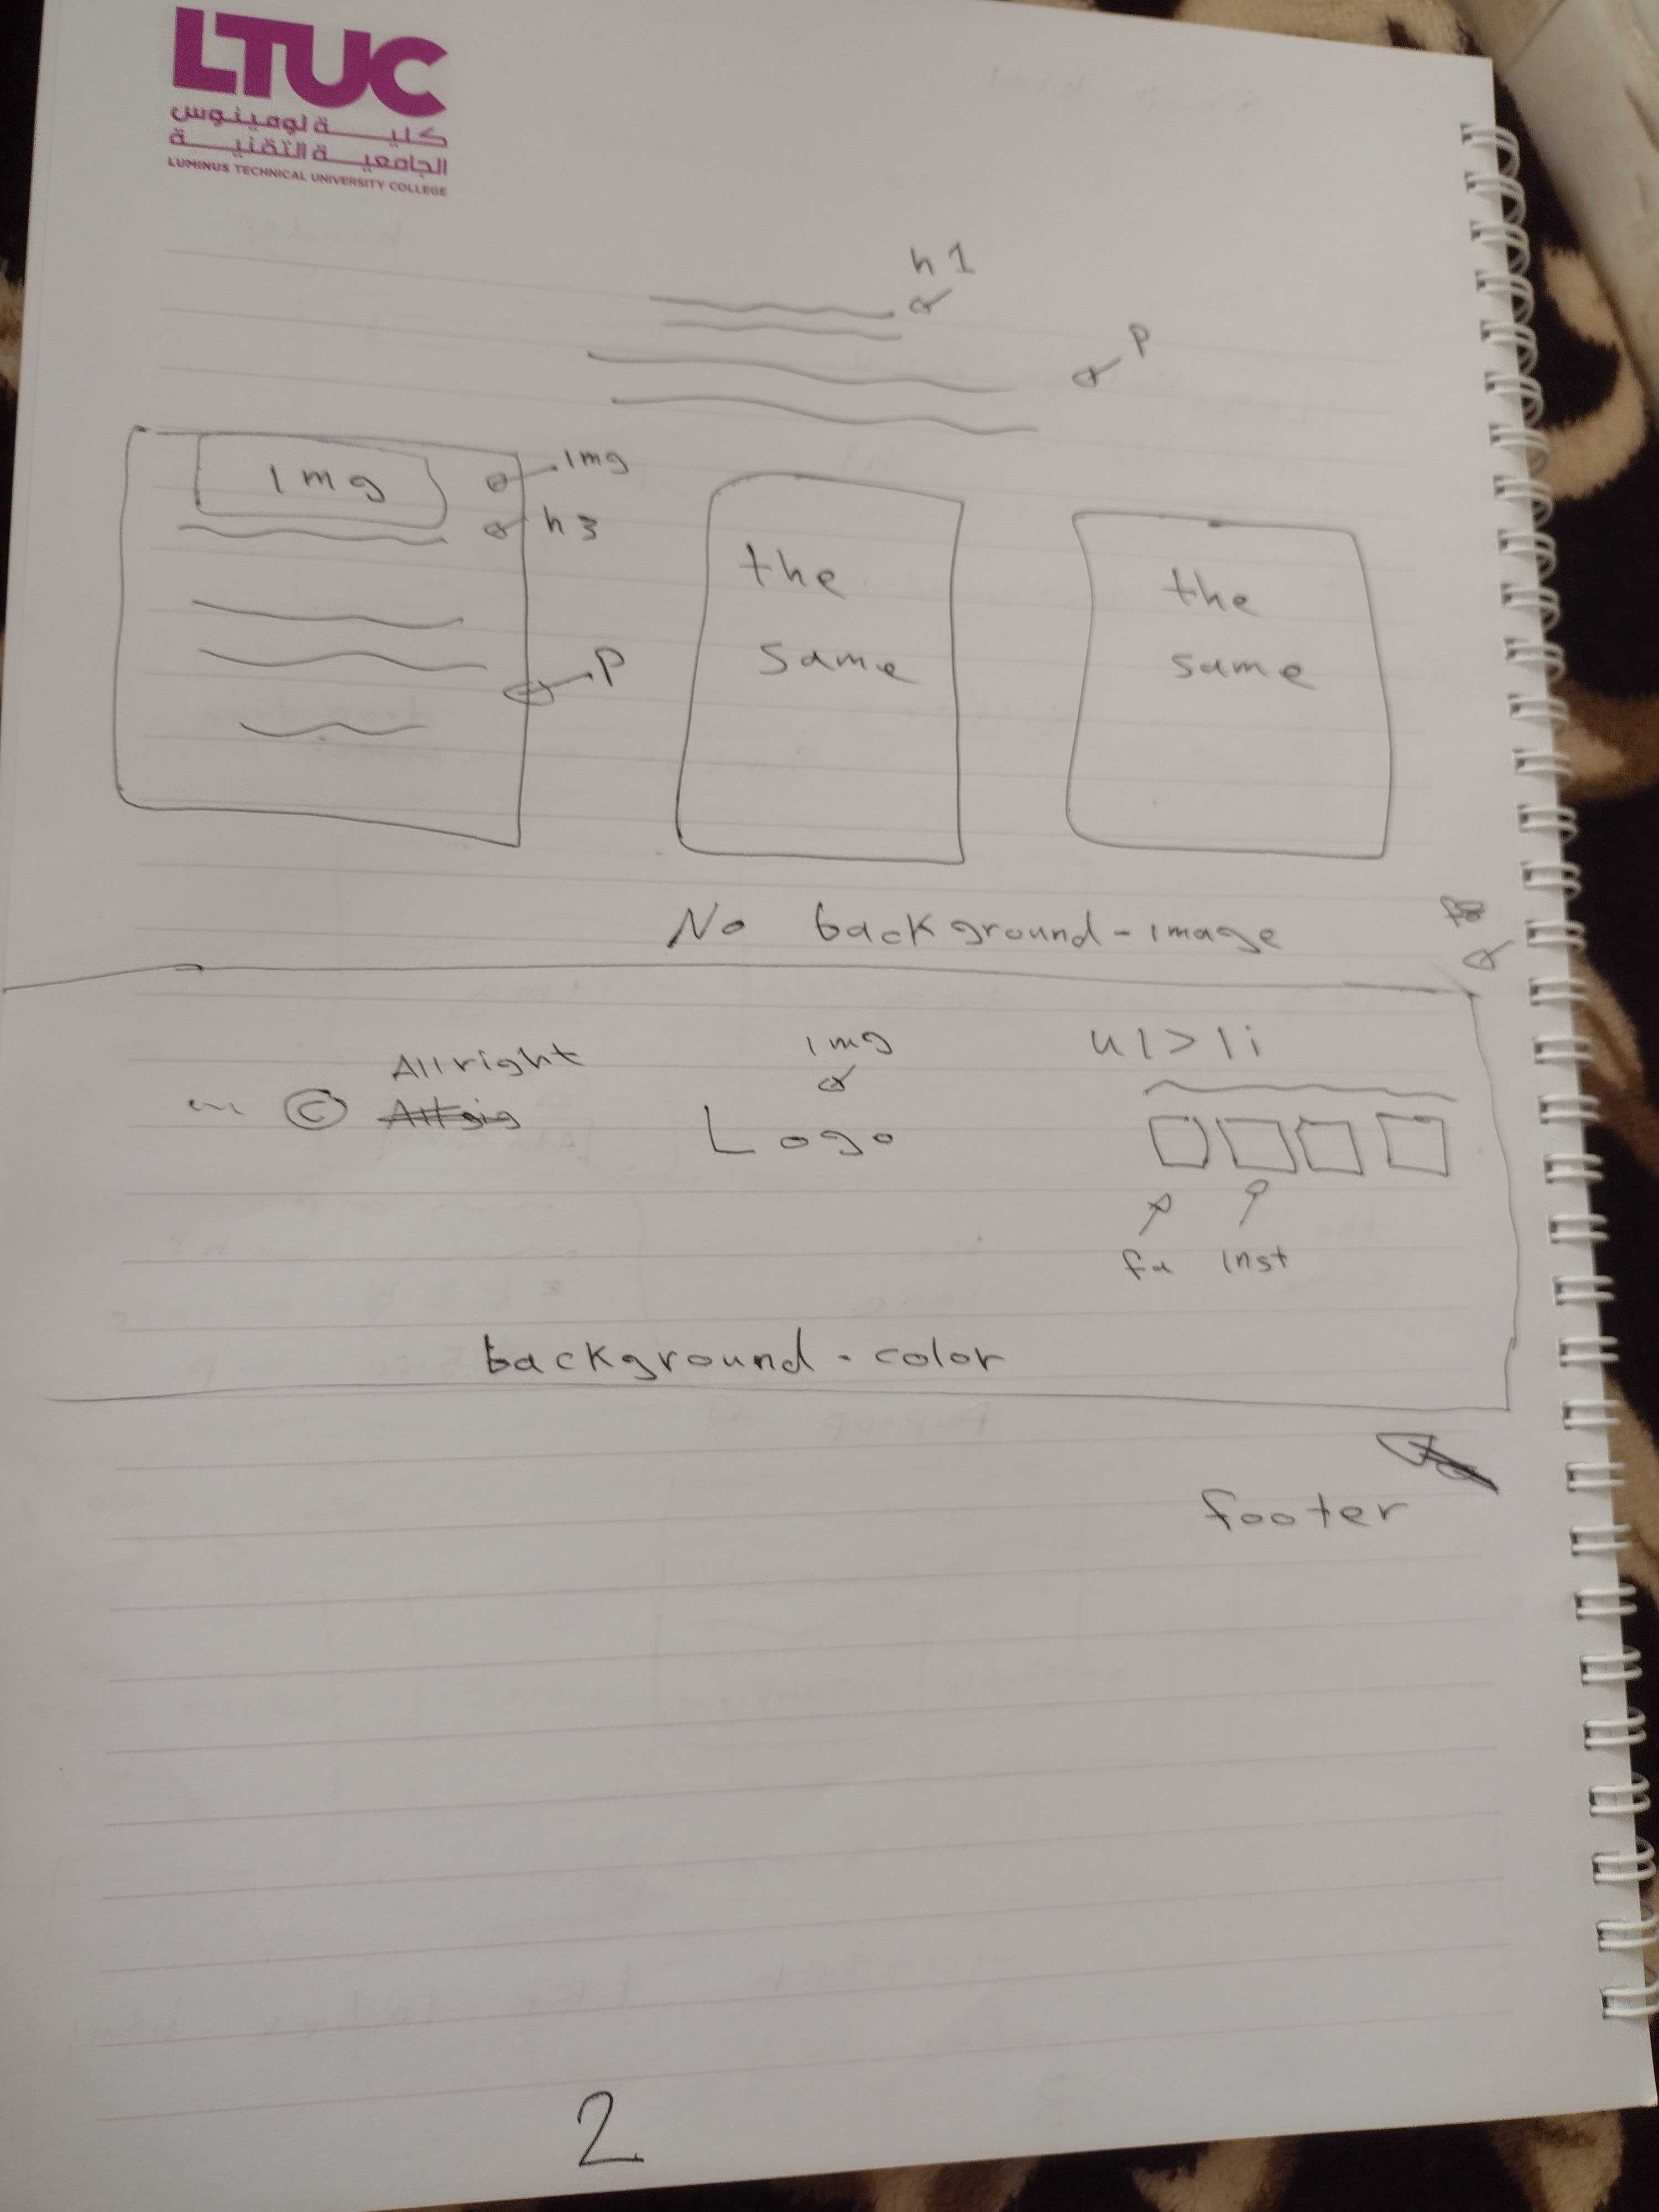 LTUC
كلية لومينوس
الجامعية التقنية
LUMINUS TECHNICAL UNIVERSITY COLLEGE
h1
P
img
img
h3
P
the
same
the
same
No background-image
All right
©
img
Logo
ul>li
fa inst
background-color
footer
2